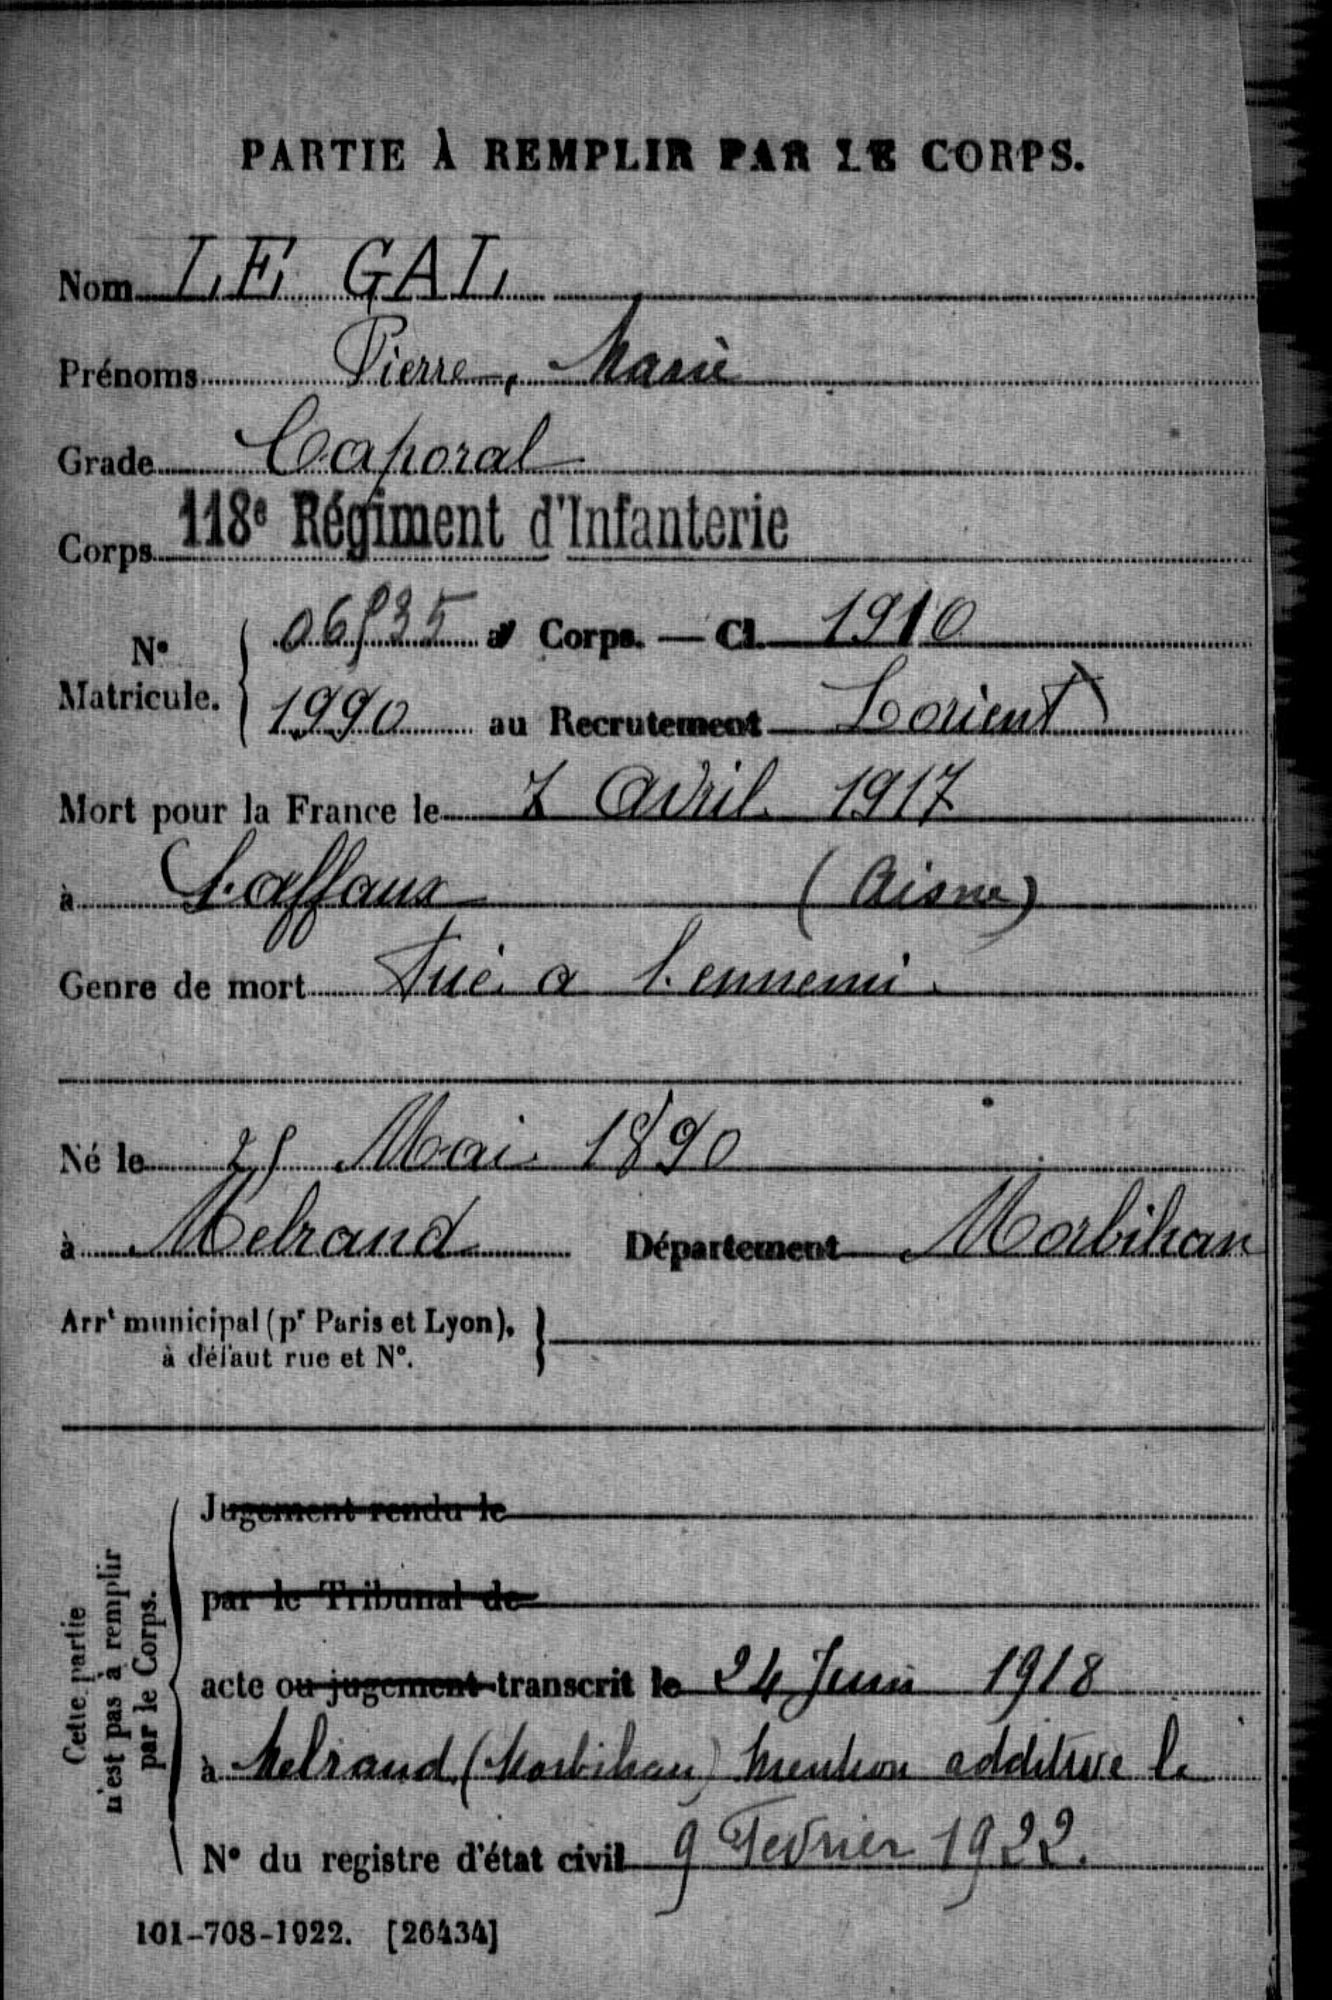 PARTIE À REMPLIR PAR LE CORPS.
Nom LE GAL
Prénoms Pierre, Marie
Grade Caporal
Corps 118e Régiment d'Infanterie
N° Matricule. { 06535 au Corps. — Cl. 1910
1990 au Recrutement Lorient
Mort pour la France le 7 Avril 1917
à Laffaux (Aisne)
Genre de mort Tué a l'ennemi.
Né le 25 Mai 1890
à Melrand Département Morbihan
Arrt municipal (pr Paris et Lyon),
à défaut rue et N°.
Cette partie
n'est pas à remplir
par le Corps.
Jugement rendu le
par le Tribunal de
acte ou jugement transcrit le 24 Juin 1918
à Melrand (Morbihan) Mention additive le
N° du registre d'état civil 9 Fevrier 1922.
101-708-1922. [26434]